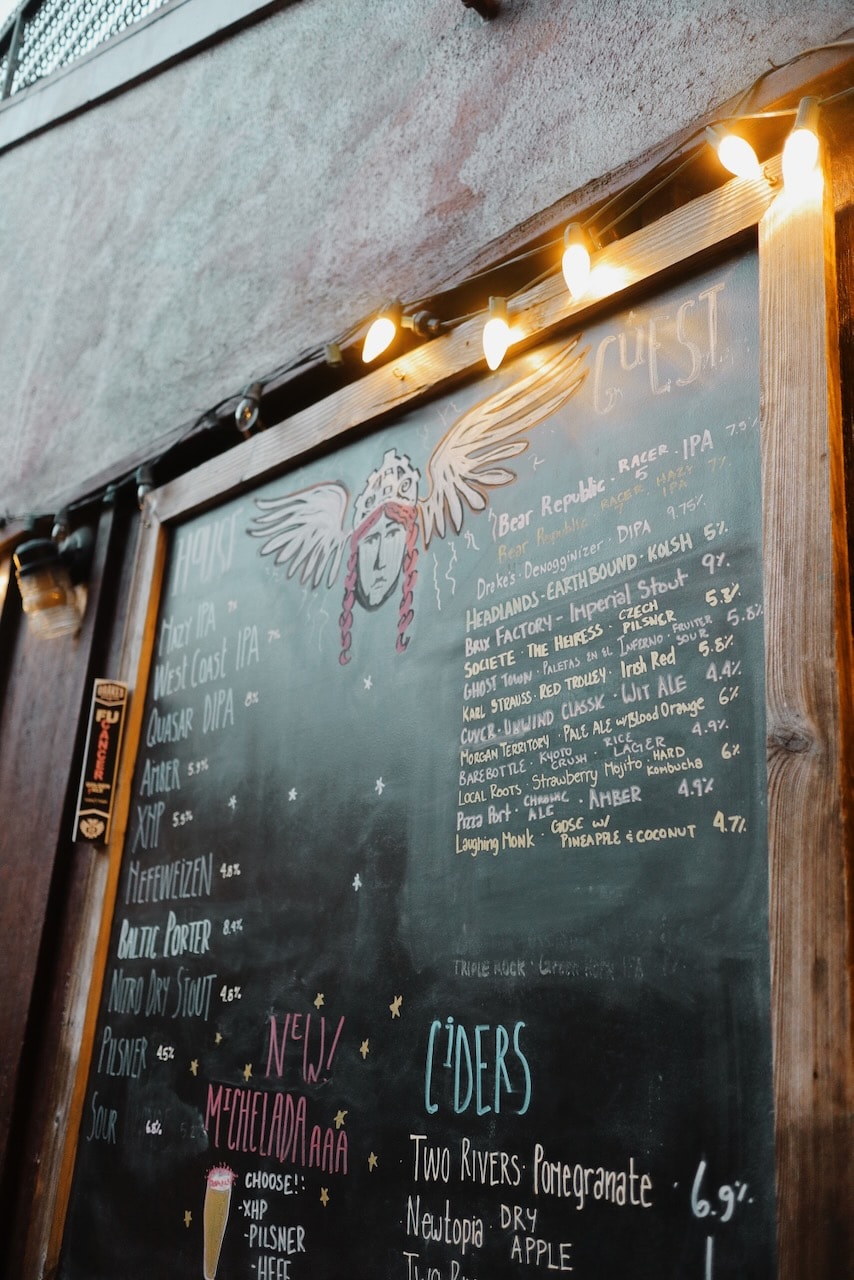 GUEST
Bear Republic · RACER 5 · IPA 7.5%
Bear Republic RACER HAZY IPA 7%
Drake's · Denogginizer · DIPA 9.75%
HEADLANDS · EARTHBOUND · KOLSH 5%
BRIX FACTORY - Imperial Stout 9%
SOCIETE · THE HEIRESS · CZECH PILSNER 5.8%
GHOST TOWN · PALETAS EN EL INFERNO · FRUITED SOUR 5.8%
KARL STRAUSS · RED TROLLEY · Irish Red 5.8%
UNWIND CLASSIC · WIT ALE 4.4%
MORGAN TERRITORY · PALE ALE w/Blood Orange 6%
BAREBOTTLE · KYOTO CRUSH · RICE LAGER 4.9%
LOCAL ROOTS · Strawberry Mojito · HARD Kombucha 6%
Pizza Port · CHRONIC ALE · AMBER 4.9%
Laughing Monk · GOSE w/ PINEAPPLE & COCONUT 4.7%
TRIPLE ROCK · IPA
HAZY IPA 7%
WEST COAST IPA 7%
QUASAR DIPA 8%
AMBER 5.9%
XHP 5.9%
HEFEWEIZEN 4.8%
BALTIC PORTER 8.4%
NITRO DRY STOUT 4.8%
PILSNER 4.5%
SOUR 6.8%
NEW!
MICHELADAAAA
CHOOSE!:
-XHP
-PILSNER
-HEFE
CIDERS
· TWO RIVERS · Pomegranate · 6.9%
Newtopia DRY APPLE
FU
CANCER